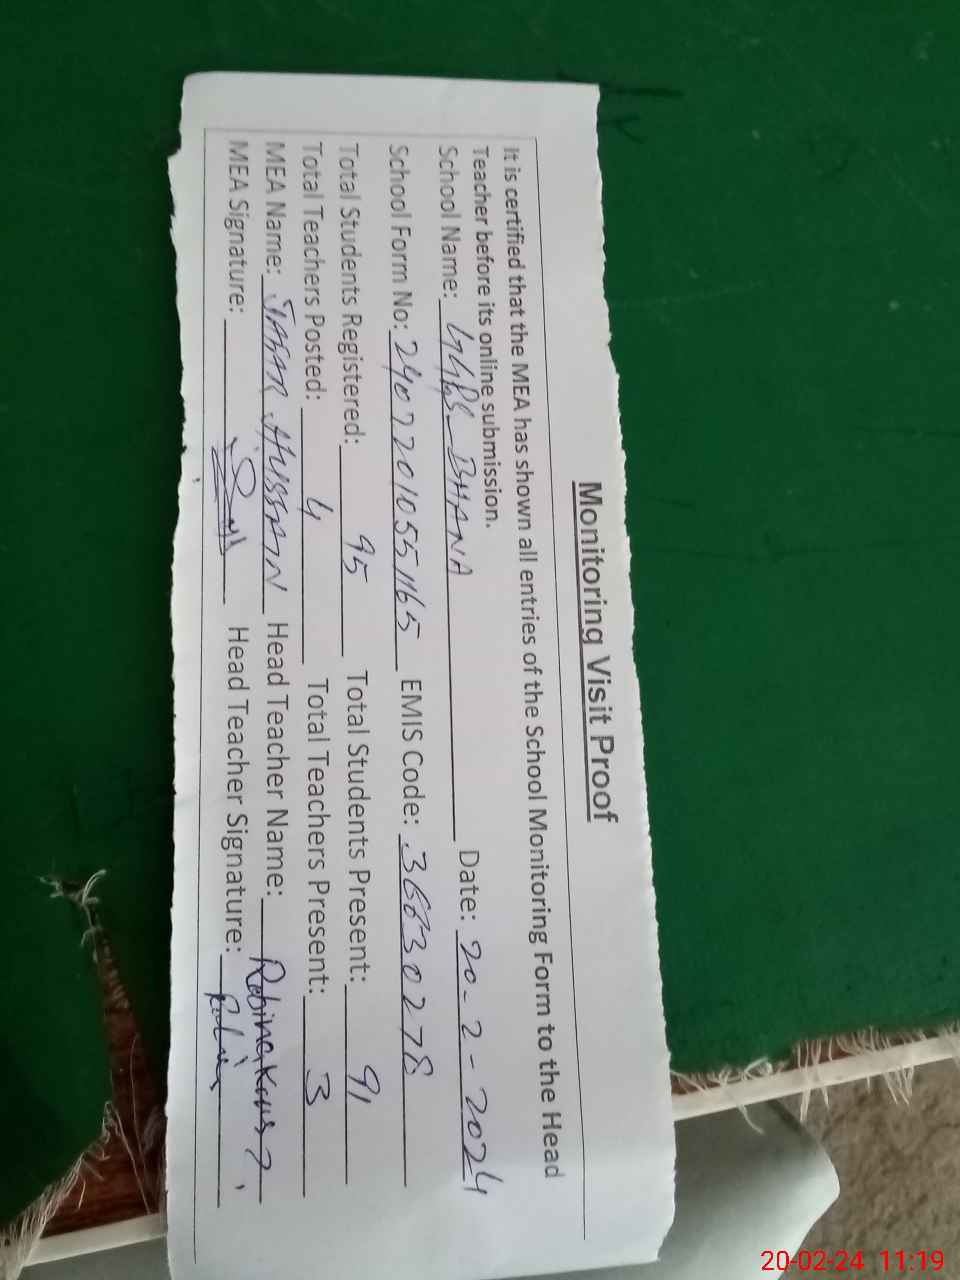 Monitoring Visit Proof
It is certified that the MEA has shown all entries of the School Monitoring Form to the Head
Teacher before its online submission.
School Name: GGPS BHANA Date: 20-2-2024
School Form No: 24022010551165 EMIS Code: 36630278
Total Students Registered: 95 Total Students Present: 91
Total Teachers Posted: 4 Total Teachers Present: 3
MEA Name: JAFAR HUSSAIN Head Teacher Name: Robina Kousar
MEA Signature: Head Teacher Signature: Robina
20-02-24 11:19